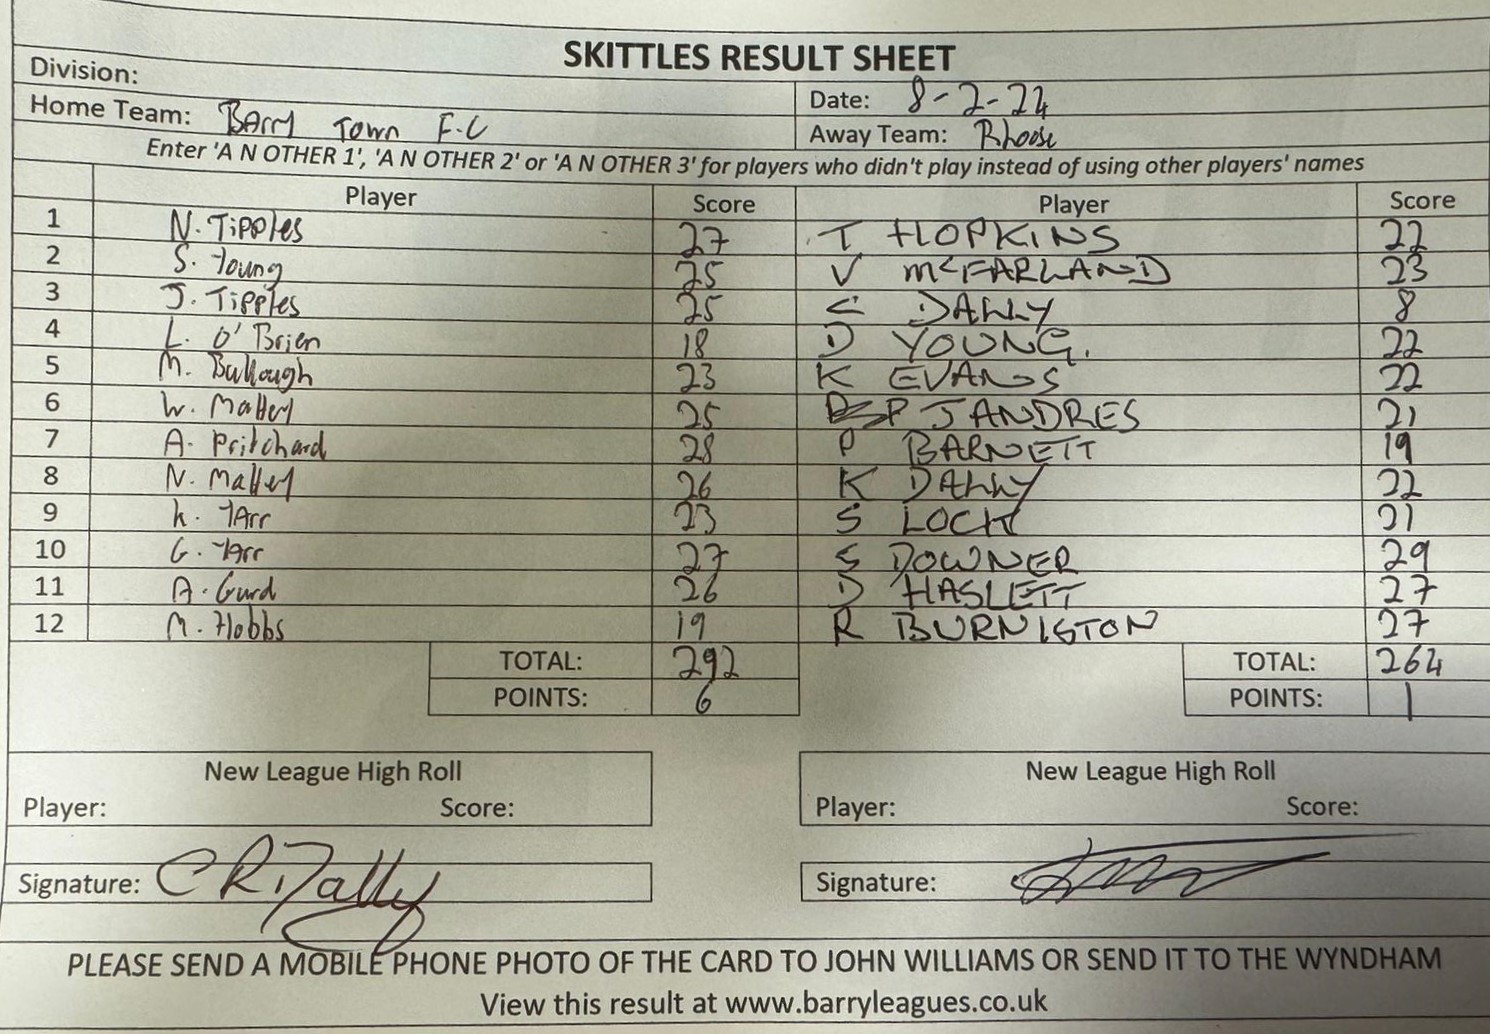 SKITTLES RESULT SHEET
Division:
Date: 8-2-24
Home Team: Barry Town F.C
Away Team: Rhoose
Enter 'A N OTHER 1', 'A N OTHER 2' or 'A N OTHER 3' for players who didn't play instead of using other players' names
Player Score Player Score
1 N. Tipples 27 T HOPKINS 22
2 S. Young 25 V McFARLAND 23
3 J. Tipples 25 C DALLY 8
4 L. O'Brien 18 D YOUNG. 22
5 M. Bullough 23 K EVANS 22
6 W. Mallery 25 P JANDRES 21
7 A. Pritchard 28 P BARNETT 19
8 N. Mallery 26 K DALLY 22
9 K. Tarr 23 S LOCK 21
10 G. Tarr 27 S DOWNER 29
11 A. Gurd 26 D HASLETT 27
12 M. Hobbs 19 R BURNISTON 27
TOTAL: 292 TOTAL: 264
POINTS: 6 POINTS: 1
New League High Roll New League High Roll
Player: Score: Player: Score:
Signature: C R Dally Signature:
PLEASE SEND A MOBILE PHONE PHOTO OF THE CARD TO JOHN WILLIAMS OR SEND IT TO THE WYNDHAM
View this result at www.barryleagues.co.uk